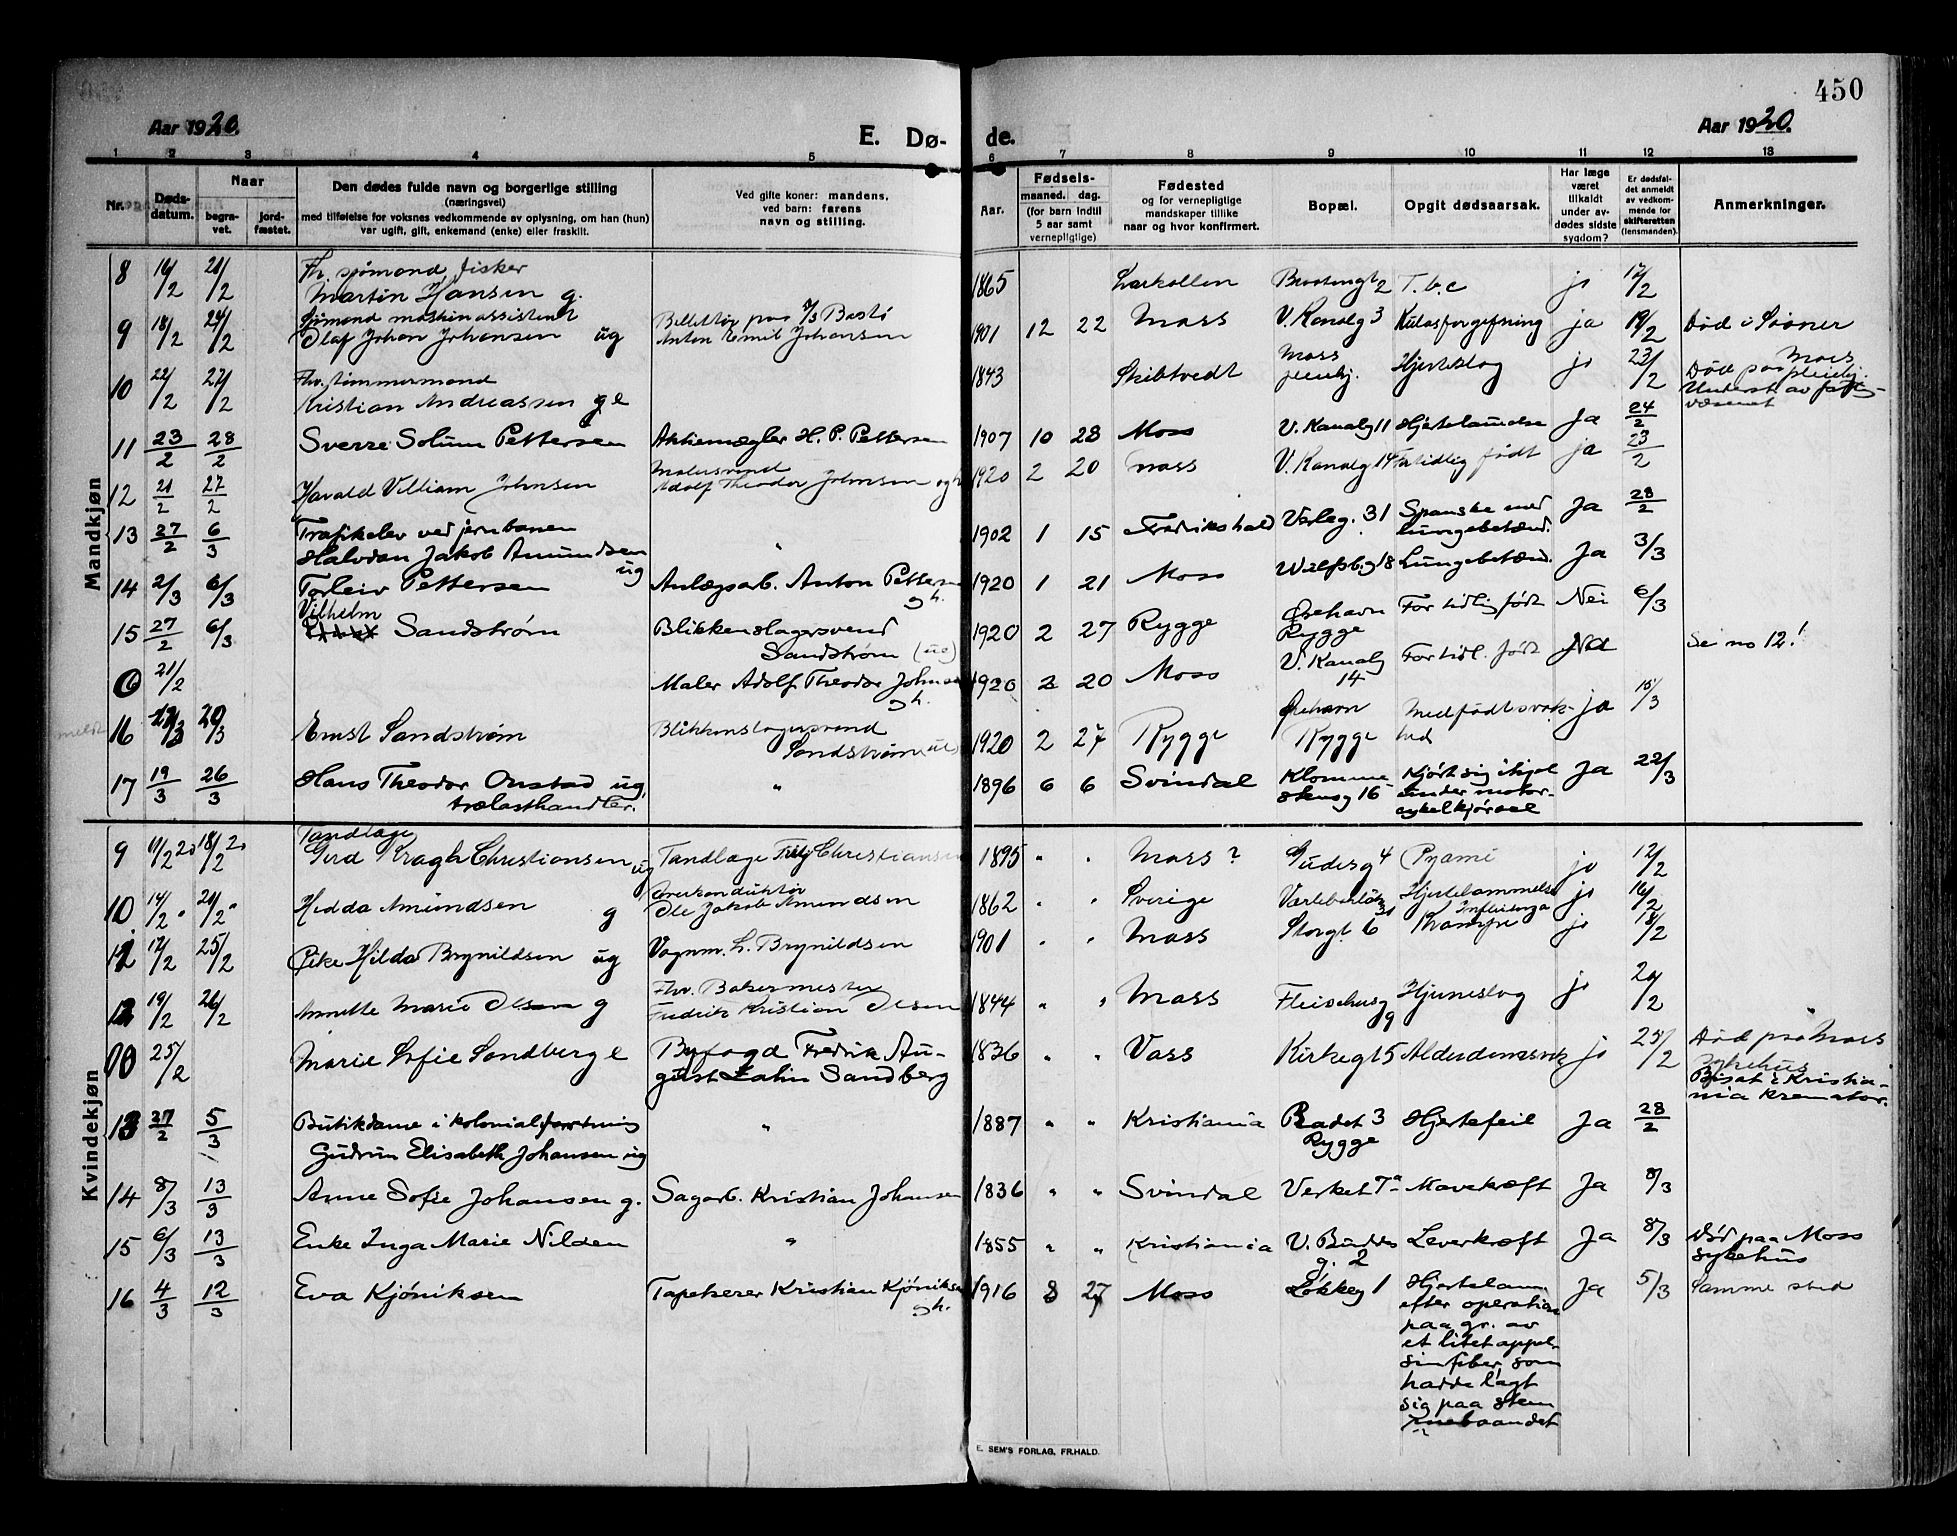 450
Aar 1920.
E. Dø-
de.
Aar 1920.
1 2 3 4 5 6 7 8 9 10 11 12 13
Nr.
Døds-
datum.
Naar
begra-
vet.
jord-
fæstet.
Den dødes fulde navn og borgerlige stilling
(næringsvei)
med tilføielse for voksnes vedkommende av oplysning, om han (hun)
var ugift, gift, enkemand (enke) eller fraskilt.
Ved gifte koner: mandens,
ved barn: farens
navn og stilling.
Aar.
Fødsels-
maaned. dag.
(for barn indtil
5 aar samt
vernepligtige)
Fødested
og for vernepligtige
mandskaper tillike
naar og hvor konfirmert.
Bopæl.
Opgit dødsaarsak.
Har læge
været
tilkaldt
under av-
dødes sidste
sygdom?
Er dødsfal-
det anmeldt
av vedkom-
mende for
skifteretten
(lensmanden).
Anmerkninger.
Mandkjøn
8 16/2 21/2 Fh. sjømand fisker
Martin Hansen g. 1865 Larkollen T.b.c ja 17/2
9 18/2 24/2 Sjømand maskinassistent
Olaf Johan Johansen ug Billettør paa D/S Bastø
Anton Emil Johansen 1901 12 22 Moss V. Kanalg 3 Kulosforgiftning ja 19/2 Død i Sooner
10 22/2 27/2 Fhv. tømmermand
Kristian Andreassen ge 1843 Skibtvedt Moss
pleiehj. Hjerteslag ja 23/2 Død paa Moss
pleiehj.
Underst. av fattig-
væsenet
11 23/2 28/2 Sverre Solum Pettersen Aktiemægler H. P. Pettersen 1907 10 28 Moss V. Kanalg 11 Hjertelammelse Ja 24/2
12 21/2 27/2 Harald Villiam Johnsen Malersvend
Adolf Theodor Johnsen og h 1920 2 20 Moss V. Kanalg 14 For tidlig født ja 23/2
13 27/2 6/3 Trafikelev ved jernbanen
Halvdan Jakob Amundsen
ug " 1902 1 15 Fredrikshald Værleg. 31 Spanske med
lungebetænd. Ja 28/2
14 2/3 6/3 Torleiv Pettersen Anlægsarb. Anton Pettersen
gh. 1920 1 21 Moss 18 Lungebetænd. Ja 3/3
15 27/2 6/3 Vilhelm
Sandstrøm Blikkenslagersvend
Sandstrøm (ue) 1920 2 27 Rygge Ørehavn
Rygge For tidlig født Nei 6/3
21/2 Maler Adolf Theodor Johnsen
gh. 1920 2 20 Moss V. Kanalg
14 For tidl. født Se no 12!
16 20/3 Ernst Sandstrøm Blikkenslagersvend
Sandstrøm (ue) 1920 2 27 Rygge Ørehavn
Rygge Medfødt svak-
hed ja 15/3
17 19/3 26/3 Hans Theodor Onstad ug,
trælasthandler. " 1896 6 6 Svindal Klomme
stensg 16 Kjørt sig ihjel
under motor-
cykelkjørsel Ja 22/3
Kvindekjøn
9 11/2 20 18/2 20 Tandlæge
Gerd Kragh Christiansen ug Tandlæge Christiansen 1895 " " Moss ? Gudesg 4 Pyæmi ja 12/2
10 14/2 " 20/2 " Hedda Amundsen g Overkonduktør
Ole Jakob Amundsen 1862 " " Sverige 31 Hjertelammelse
Influenza ja 16/2
11 17/2 25/2 Pike Hilda Brynildsen ug Vognm. L. Brynildsen 1901 " " Moss Storgt. 6 ja 18/2
12 19/2 26/2 Annette Marie Olsen g Fhv. Bakermester
Fredrik Kristian Olsen 1844 " " Moss Fleischersg
9 Hjerneslag ja 20/2
25/2 Marie Sofie Sandberg e Byfogd Fredrik Au-
gust Zahn Sandberg 1836 " " Vass Kirkegt 5 Alderdomssvak ja 25/2 Død paa Moss
sykehus
Bisat i Kristia-
nia kremator.
13 27/2 5/3 Butikdame i kolonialforretning
Gudrun Elisabeth Johansen ug " 1887 " " Kristiania Radet 3
Rygge Hjertefeil Ja 28/2
14 8/3 13/3 Anne Sofie Johansen g. Sagarb. Kristian Johansen 1836 " " Svindal Verket 7a Mavekræft Ja 8/3
15 6/3 13/3 Enke Inga Marie Nilsen " 1855 " " Kristiania g. 2 Leverkræft Ja 8/3 Død paa Moss
sykehus
16 4/3 12/3 Eva Kjøniksen Tapetserer Kristian Kjøniksen
gh. 1916 8 27 Moss Løkkeg 1 Hjertelam.
efter operation
paa gr. av
et litet appel-
sinfiber, som
hadde lagt
sig paa stem
mebaandet Ja 5/3 Samme sted
E. SEM'S FORLAG, FR.HALD.